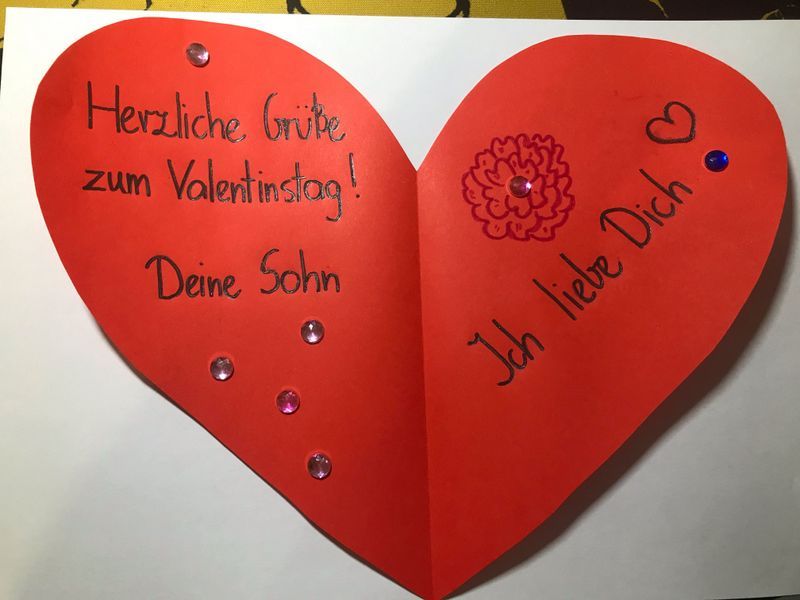 Herzliche Grüße
zum Valentinstag!
Deine Sohn
Ich liebe Dich